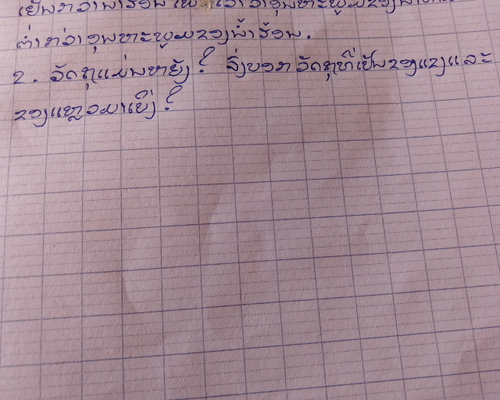 ເຢັນກວ່ານ້ຳຮ້ອນ
ຕ່ຳກວ່າອຸນຫະພູມຂອງນ້ຳຮ້ອນ.
2. ວັດຖຸແມ່ນຫຍັງ? ຈົ່ງບອກວັດຖຸທີ່ເປັນຂອງແຂງແລະ
ຂອງແຫຼວມາເບິ່ງ?